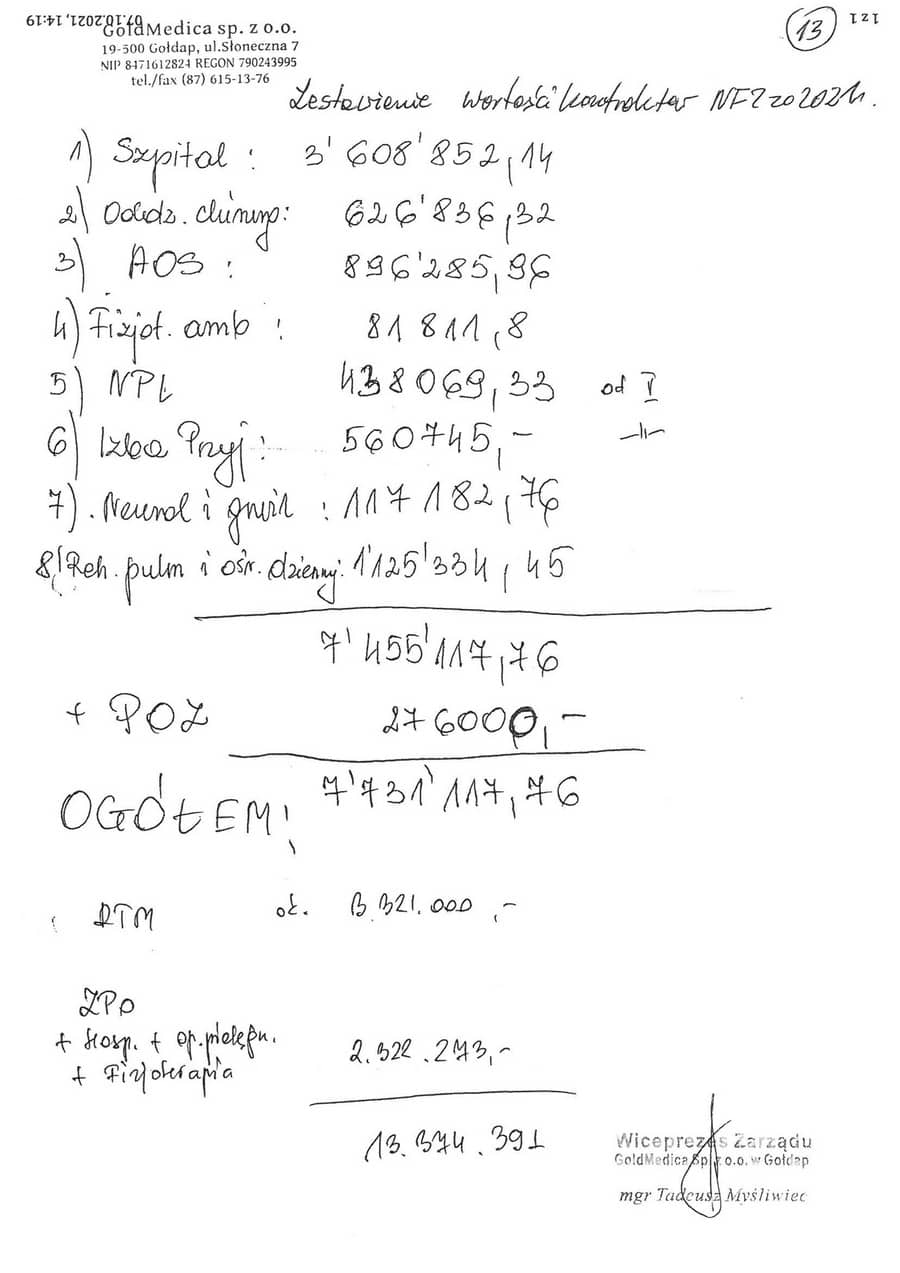 07.10.2021, 14:19
121
13
GoldMedica sp. z o.o.
19-500 Gołdap, ul.Słoneczna 7
NIP 8471612824 REGON 790243995
tel./fax (87) 615-13-76
Zestawienie wartości kontraktów NFZ za 2021r.
1) Szpital : 3'608'852,14
2) Oddz. chirurg: 626'836,32
3) AOS : 896'285,96
4) Fizjot. amb : 81 811,8
5) NPL 438 069,33 od I
6) Izba Przyj: 560745,- -||-
7). Neurol i gruźl : 117 182,76
8) Reh. pulm i ośr. dzienny: 1'125'334,45
7'455'117,76
+ POZ 276000,-
OGÓŁEM! 7'731'117,76
RTM ok. 3.321.000,-
ZPO
+ Hosp. + op.pielęgn.
+ Fizjoterapia 2.322.273,-
13.374.391
Wiceprezes Zarządu
GoldMedica Sp. z o.o. w Gołdap
mgr Tadeusz Myśliwiec